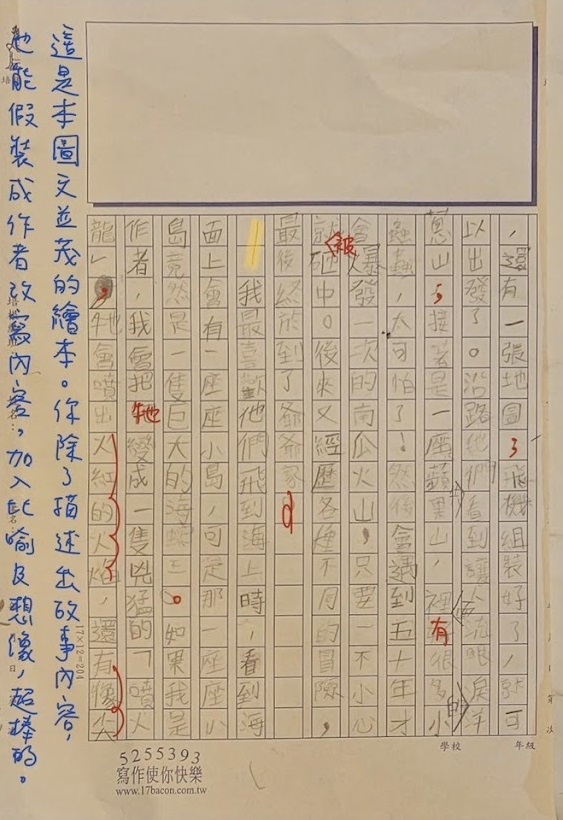 ，還有一張地圖，飛機組裝好了，就可
以出發了。沿路他們看到讓人流眼淚洋
蔥山，接著是一座蘋果山，裡有很多小的
蟲蟲，太可怕了！然後會遇到五十年才
會爆發一次的南瓜火山，只要一不小心
就被砸中。後來又經歷各種不同的冒險，
最後終於到了爺爺家。
我最喜歡他們飛到海上時，看到海
面上會有一座座小島，可是那一座座小
島竟然是一隻巨大的海王。如果我是
作者，我會把牠變成一隻兇猛的「噴火
龍」，牠會噴出火紅的火焰，還有像尖
這是本圖文並茂的繪本。你除了描述出故事內容，
也能假裝成作者改寫內容，加入比喻及想像，超棒的。
17×12=204
學校
年級
5255393
寫作使你快樂
www.17bacon.com.tw